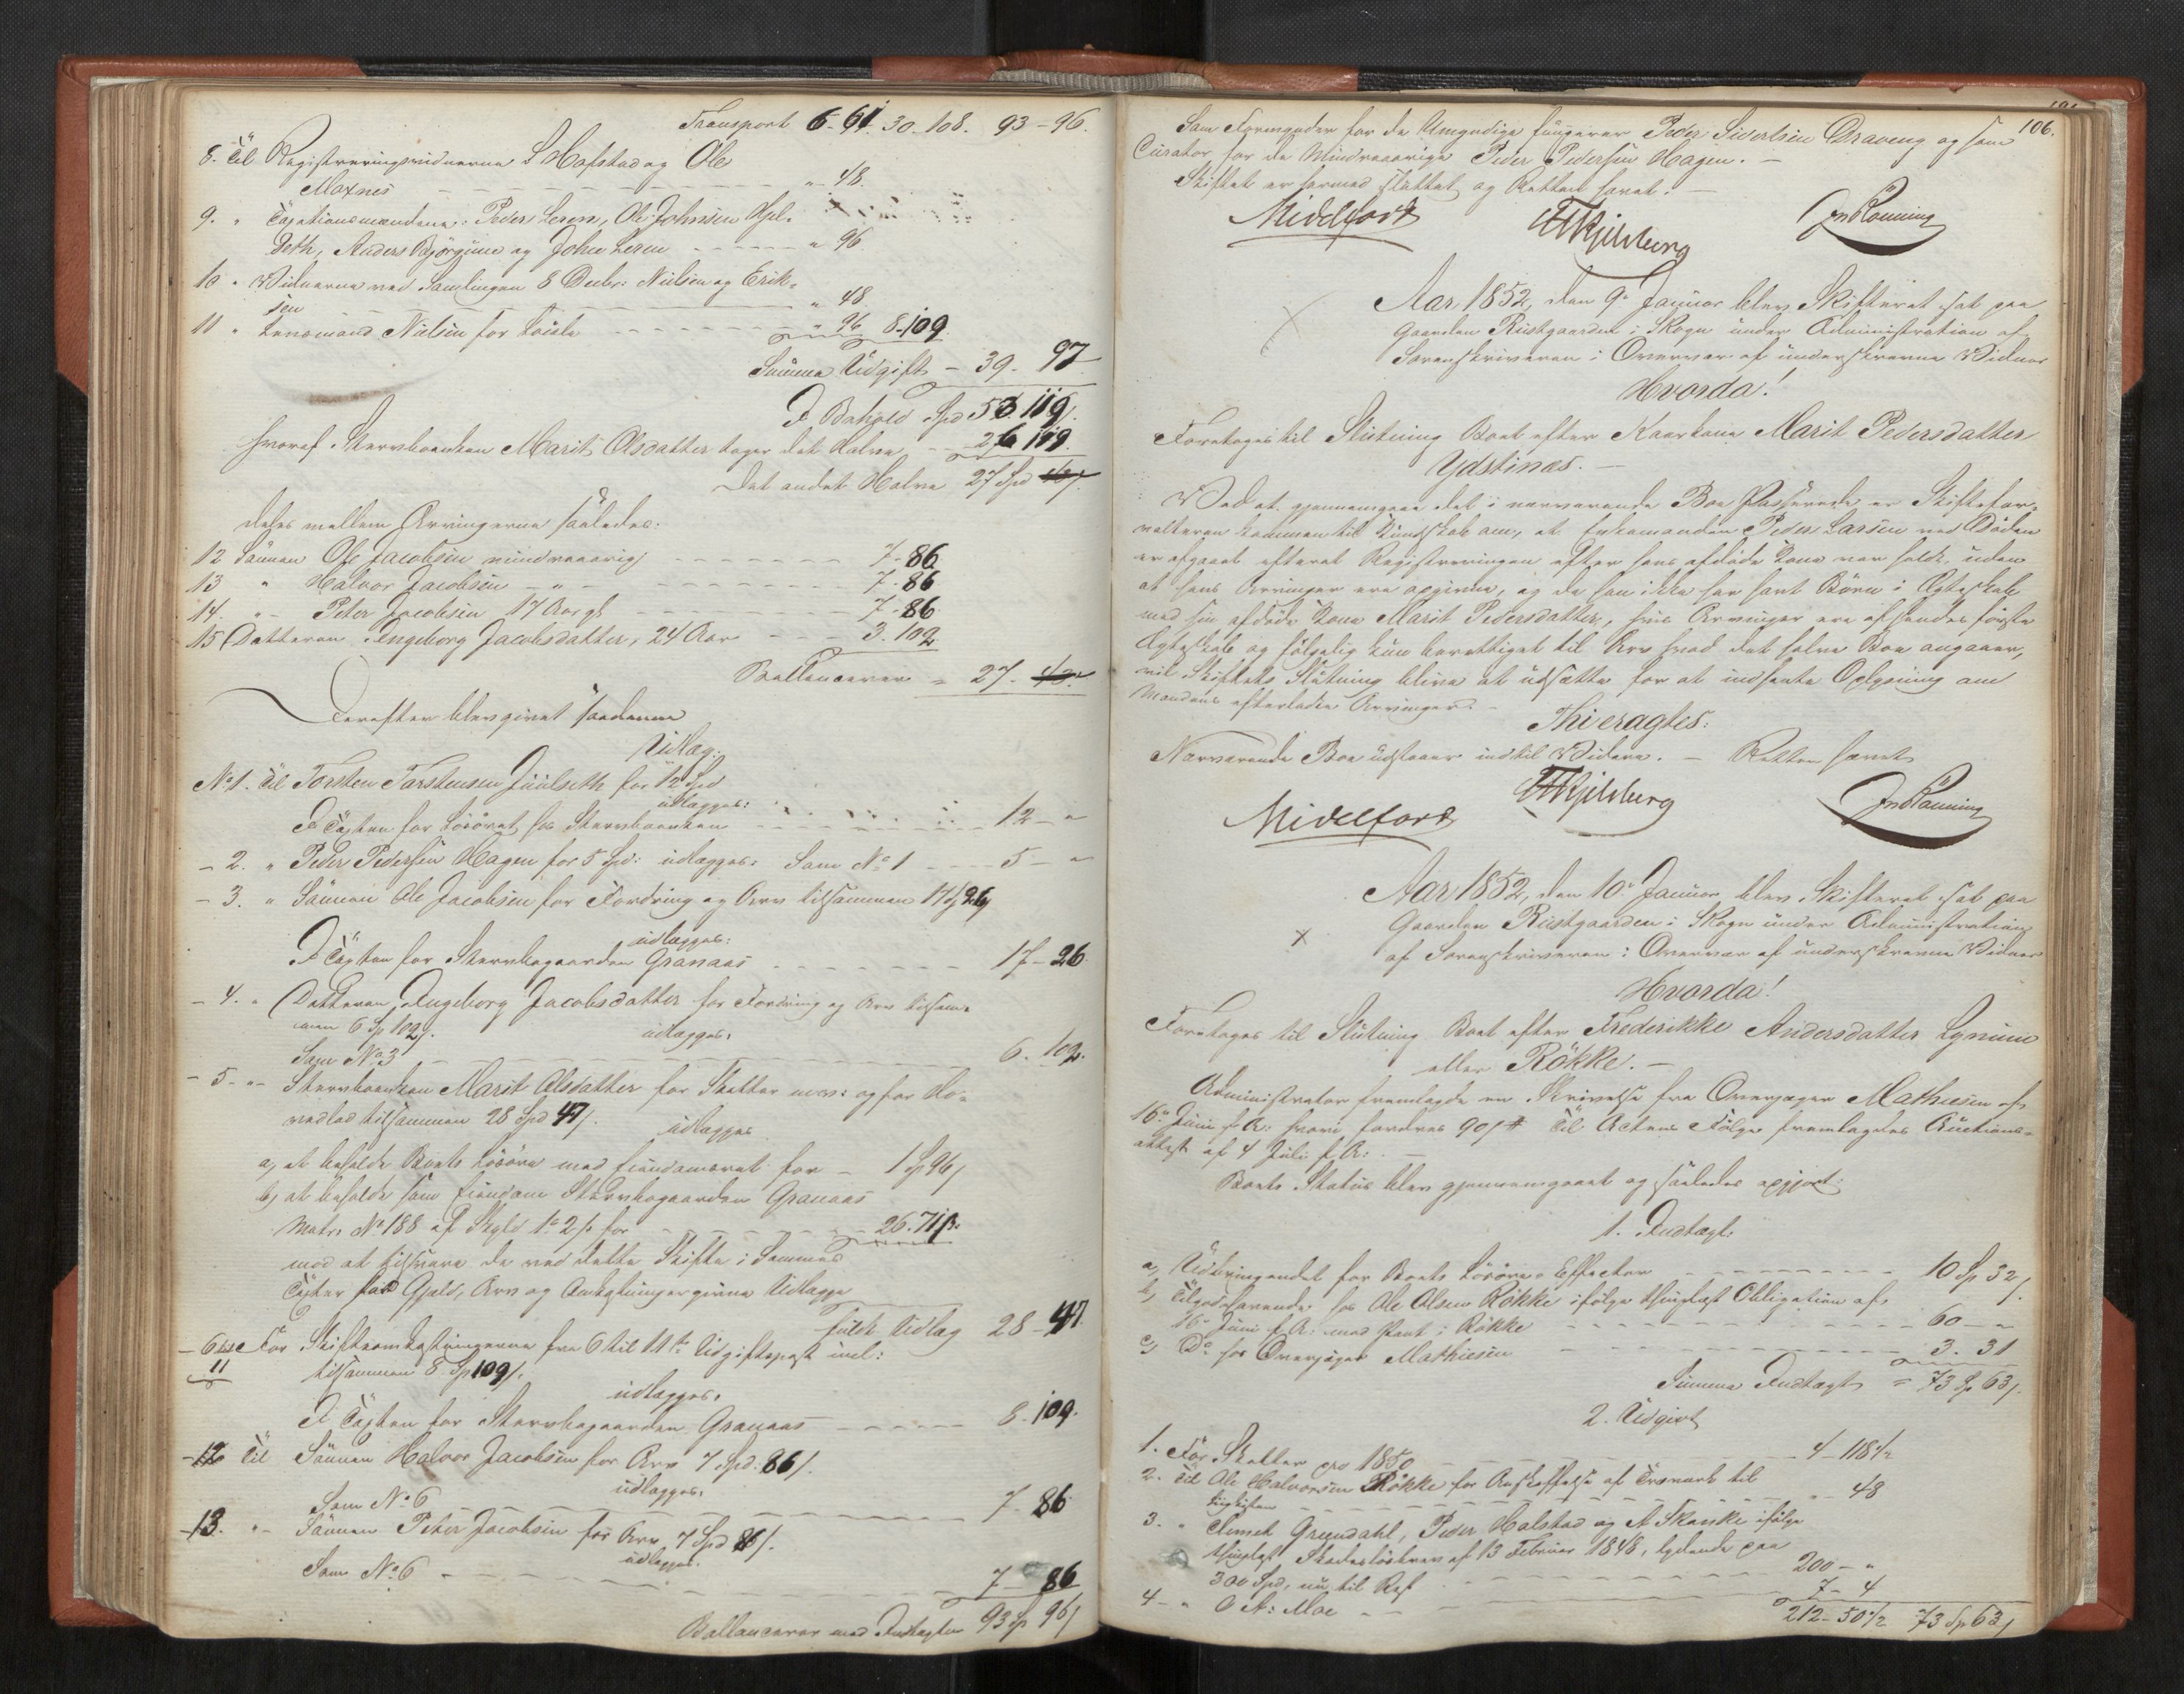 Transport 6. 61. 30. 108. 93 - 96.
8. Til Registreringsvidnerne L Hofstad og Ole
Moxnes - - - " - 48.
9. " Taxationsmændene: Peder Leren, Ole Johnsen
Anders og John Leren - - - " 96
10 " Vidnerne ved Samlingen 8 Decbr: Nielsen og Erik-
sen - - - " 48
11 " Lensmand Nielsen for - - - " 96 8-109
Summa Udgift - 39. 97
I Behold Spd 53. 119.
hvoraf Stervboenken Marit Olsdatter tager det Halve - 26 119.
Det andet Halve 27 Spd
deles mellem Arvingerne saaledes:
12 Sønnen Ole Jacobsen mindreaarig - - - 7-86
13 " Halvor Jacobsen - " - - - - 7-86
14. " - Peter Jacobsen 17 Aar gl - - - 7-86
15 Datteren Ingeborg Jacobsdatter, 24 Aar - - - 3. 102
Ballancerer = 27.
Derefter blev givet saadanne
Udlæg:
No 1. Til Torsten Torstensen Juulseth for 12 Spd
udlægges:
I Taxten for Løsøret hos Stervboenken - - - 12 - "
- 2. " Peder Pedersen Hagen for 5 Spd: udlægges: Som No 1 - - - 5 - "
- 3. " Sønnen Ole Jacobsen for Fordring og Arv tilsammen 17 Sp 26
udlægges:
I Taxten for Stervbogaarden Granaas - - - 17-26
- 4. " Datteren Ingeborg Jacobsdatter for Fordring og Arv tilsam-
men 6 Sp 102. udlægges:
Som No 3 - - - 6. 102.
- 5. " - Stervboenken Marit Olsdatter for Skatter mv: og for Ho-
vedlod tilsammen 28 Spd 47. udlægges
a, at beholde Boets Løsøre med Eiendomsret for - 1 Sp 96
b, at beholde som Eiendom Stervbogaarden Granaas
Matr. No 188 af Skyld 1. 2. for - - - 26. 71 β.
mod at tilsvare de ved dette Skifte i Sammes
Taxter for Gjæld, Arv og Omkostninger givne Udlægge
fuldt Udlæg 28-47
- 6 til For Skifteomkostningerne fra 6 til 11te Udgiftspost incl:
11 tilsammen 8 Sp 109.
udlægges.
I Taxten for Stervbogaarden Granaas - - - 8. 109.
- 12 Til Sønnen Halvor Jacobsen for Arv 7 Spd. 86.
udlægges.
Som No 6 - - - 7-86
- 13. " - Sønnen Peter Jacobsen for Arv 7 Spd 86.
udlægges.
Som No 6 - - - 7-86
Ballancerer med Indtægten 93 Sp 96
106.
Som Formynder for de Umyndige fungerer Peder Sivertsen Draveng og som
Curator for de Mindreaarige Peder Pedersen Hagen. -
Skiftet er hermed sluttet og Retten hævet. -
Midelfart
Kjelsberg
Jn Rønning
Aar 1852, den 9de Januar blev Skifteret sat paa
Gaarden Riistgaarden i Skogn under Administration af
Sorenskriveren i Overvær af underskrevne Vidner
Hvorda!
Foretoges til Slutning Boet efter Kaarkone Marit Pedersdatter
Ydstines. -
Ved at gjennemgaae det i nærværende Boe Passerede er Skiftefor-
valteren kommen til Kundskab om, at Enkemanden Peder Larsen ved Døden
er afgaaet efterat Registreringen efter hans afdøde Kone var holdt, uden
at hans Arvinger ere opgivne, og da han ikke har havt Børn i Ægteskab
med sin afdøde Kone Marit Pedersdatter, hvis Arvinger ere af hendes første
Ægteskab og følgelig kun berettiget til Arv hvad det halve Boe angaaer,
vil Skiftets Slutning blive at udsætte for at indhente Oplysning om
Mandens efterladte Arvinger. -
Thi eragtes:
Nærværende Boe udstaaer indtil Videre. - Retten hævet
Midelfart
Kjelsberg
Jn Rønning
Aar 1852, den 10de Januar blev Skifteret sat paa
Gaarden Riistgaarden i Skogn under Administration
af Sorenskriveren i Overvær af underskrevne Vidner
Hvorda!
Foretoges til Slutning Boet efter Frederikke Andersdatter Lynum
eller Røkke. -
Administrator fremlagde en Skrivelse fra Overjæger Mathiesen af
16de Juni f. A: hvori fordres 90 Til Actens Følge fremlagdes Auctions-
attest af 4 Juli f. A: -
Boets Status blev gjennemgaaet og saaledes opgjort:
1. Indtægt.
a, Udbringendet for Boets Løsøre-Effecter - - - 10 Sp 32
b, Tilgodehavende hos Ole Olsen Røkke ifølge thinglæst Obligation af
16de Juni f. A: med Pant i Røkke - - - 60 - "
c, Do hos Overjæger Mathiesen - - - 3. 31
Summa Indtægt = 73 Sp 63
2. Udgivt
1. For Skatter pro 1850 - - - 4-118½
2. Til Ole Halvorsen Røkke for Anskaffelse af til
Liigkisten - - - " - 48
3. " Grendahl, Peder Halstad og A Skanke ifølge
thinglæst Skadesløsbrev af 13 Februar 1848, lydende paa
300 Spd, nu til Rest - - - 200 - "
4 - " O A: Moe - - - 7-4
212-50½ 73 Sp 63